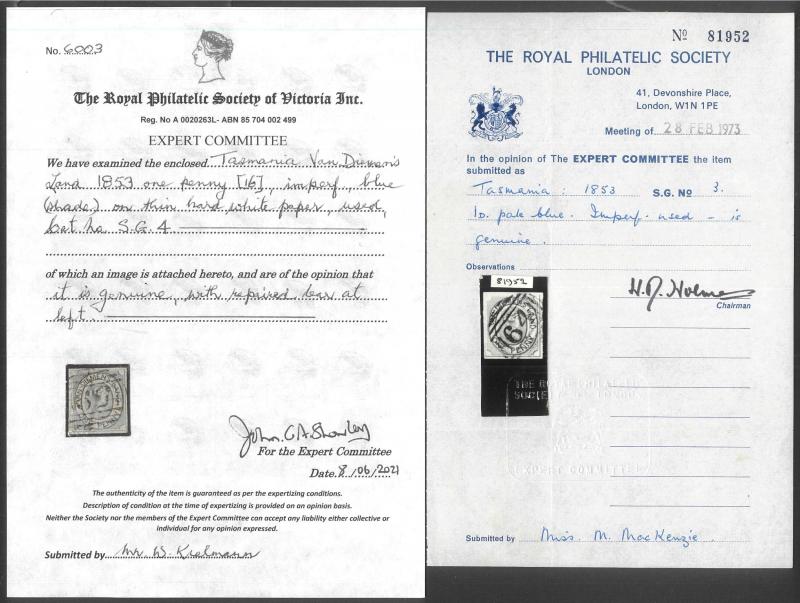 No. 6003
The Royal Philatelic Society of Victoria Inc.
Reg. No A 0020263L- ABN 85 704 002 499
EXPERT COMMITTEE
We have examined the enclosed Tasmania Van Diemen's
Land 1853 one penny [16], imperf, blue
(shade) on thin hard white paper, used,
Cat no S.G. 4
of which an image is attached hereto, and are of the opinion that
it is genuine, with repaired tear at
left.
For the Expert Committee
Date. 8/06/2021
The authenticity of the item is guaranteed as per the expertizing conditions.
Description of condition at the time of expertizing is provided on an opinion basis.
Neither the Society nor the members of the Expert Committee can accept any liability either collective or
individual for any opinion expressed.
Submitted by Mr W. Kielmann
No 81952
THE ROYAL PHILATELIC SOCIETY
LONDON
41, Devonshire Place,
London, W1N 1PE
Meeting of 28 FEB 1973
In the opinion of The EXPERT COMMITTEE the item
submitted as
Tasmania: 1853 S.G. No 3.
1d. pale blue. Imperf. used – is
genuine.
Observations
81952
64
PENNY
H. D. Holmes
Chairman
THE ROYAL PHILATELIC
SOCIETY OF LONDON
EXPERT COMMITTEE
Submitted by Miss. M. MacKenzie.